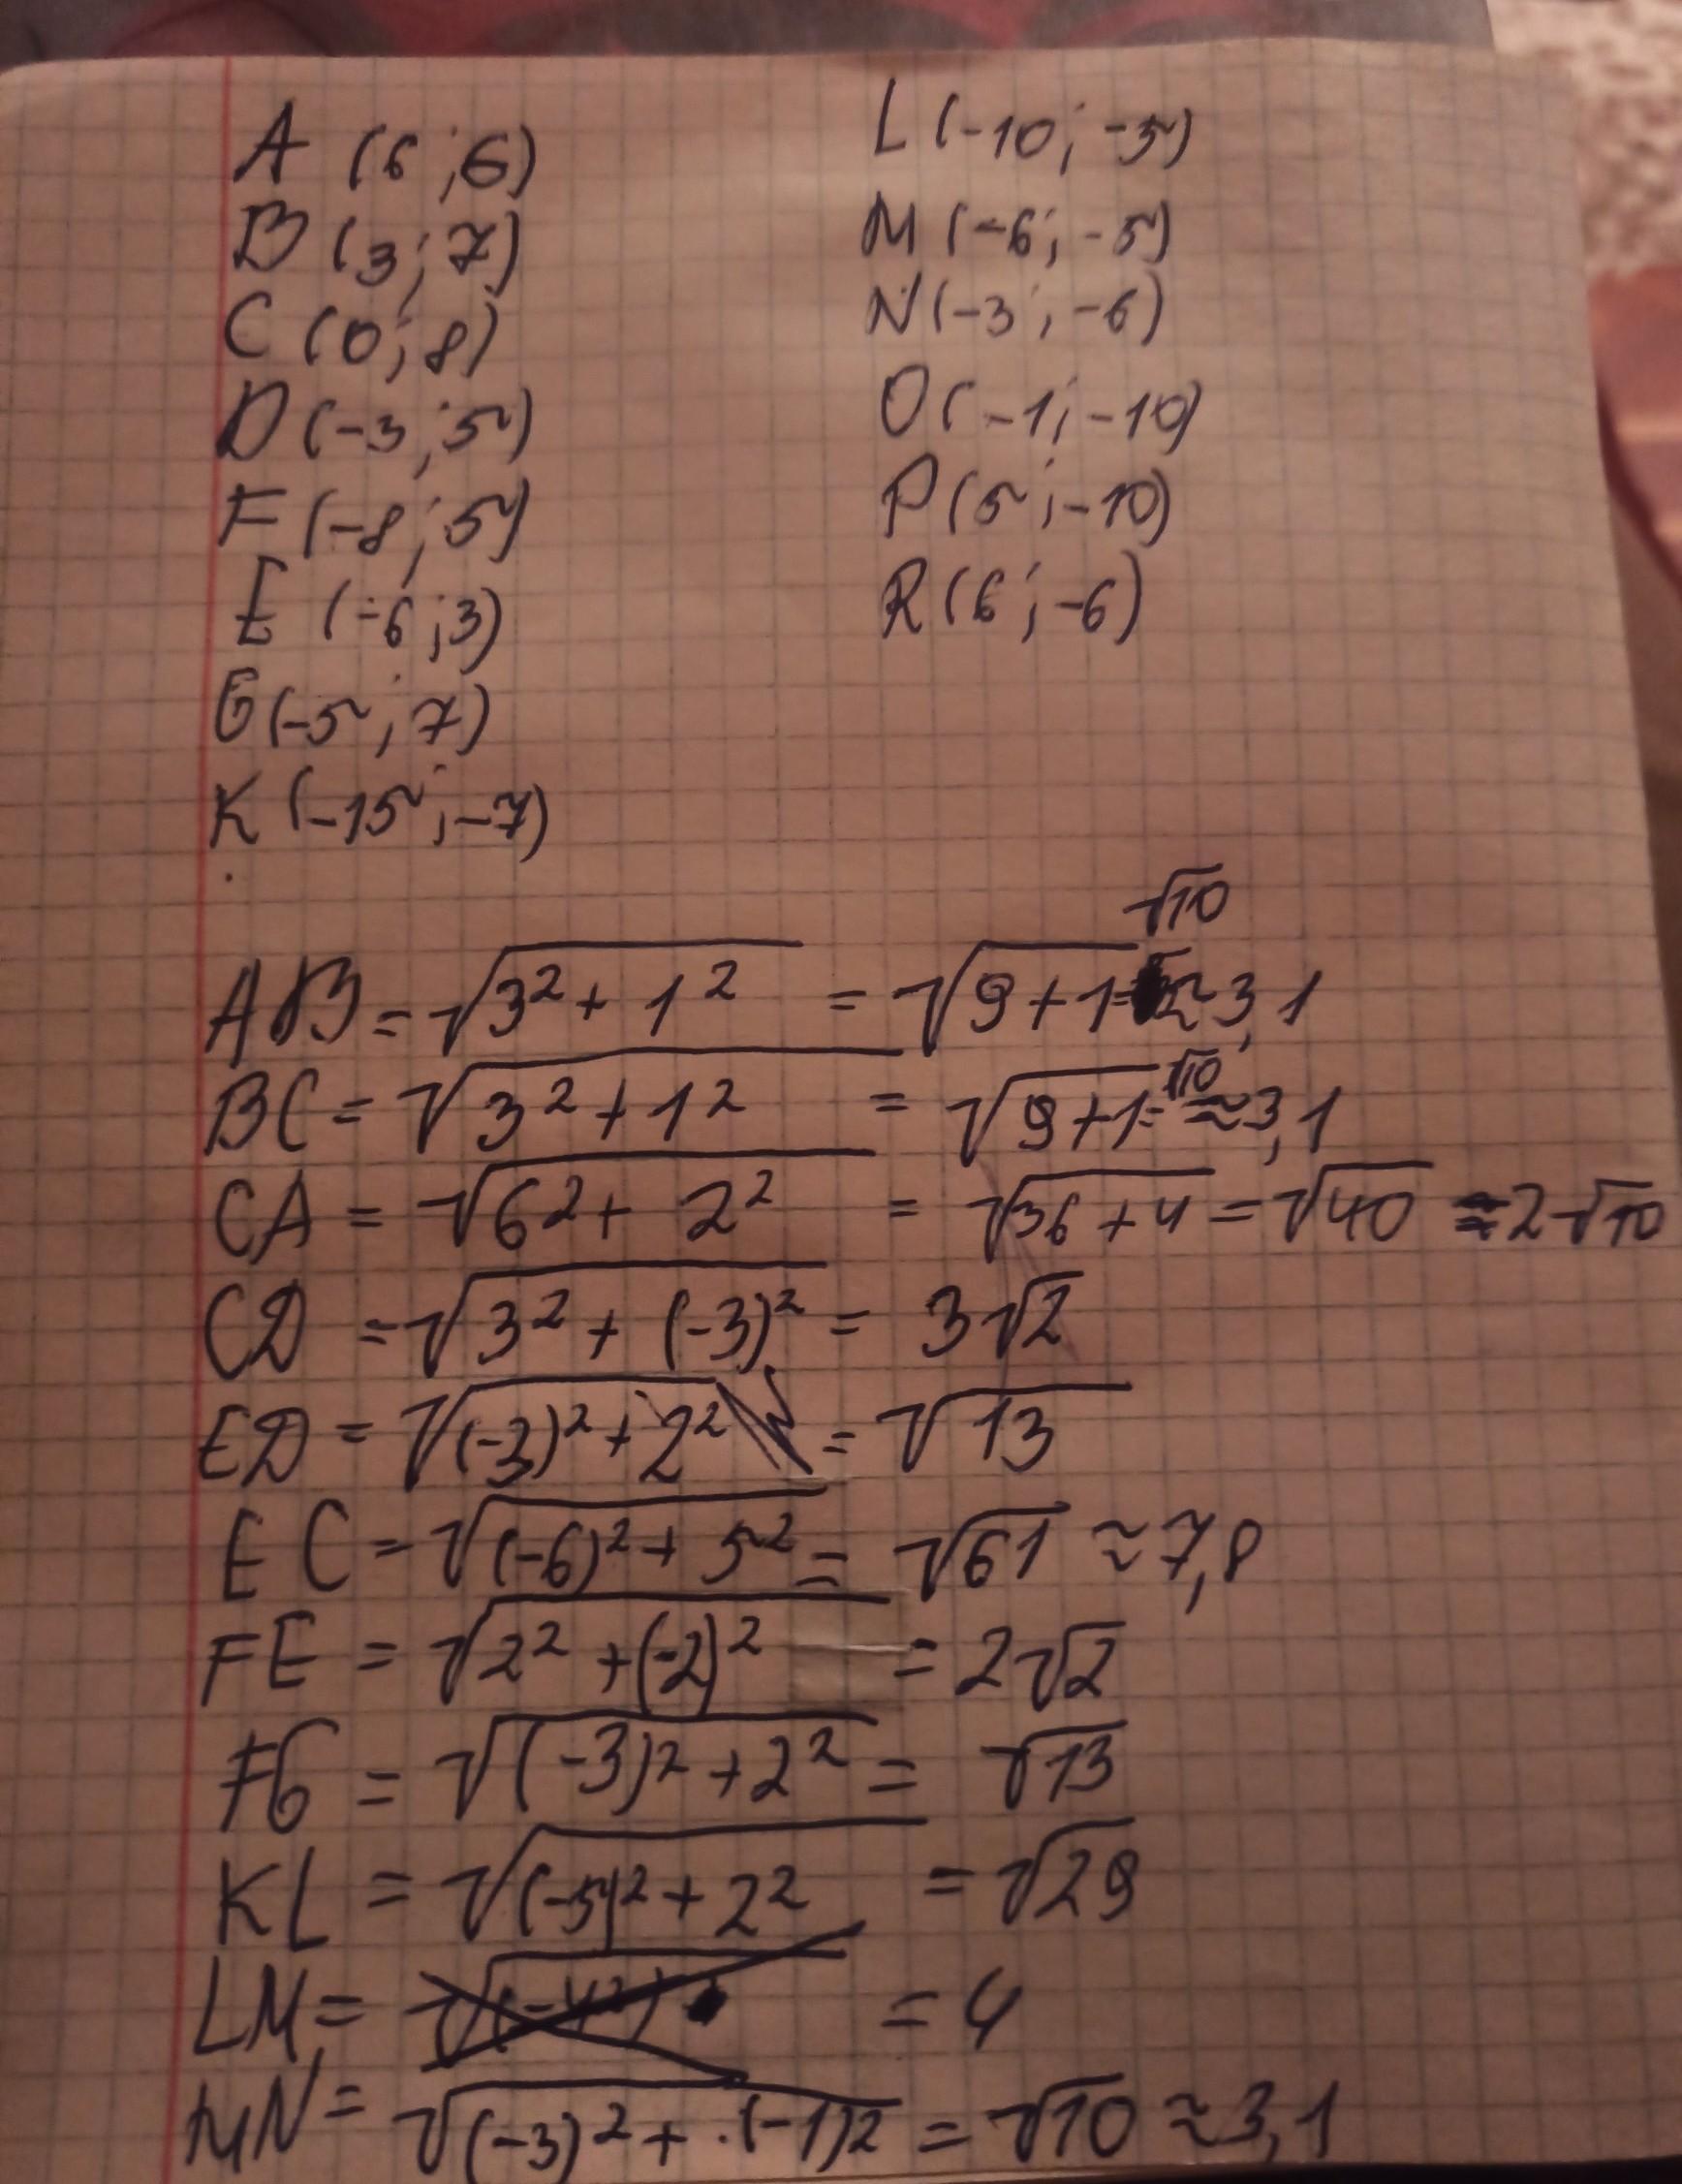 A (6 ; 6)
B (3 ; 7)
C (0 ; 8)
D (-3 ; 5)
F (-8 ; 5)
E (-6 ; 3)
G (-5 ; 7)
K (-15 ; -7)
L (-10 ; -5)
M (-6 ; -5)
N (-3 ; -6)
O (-1 ; -10)
P (5 ; -10)
R (6 ; -6)
AB = √(3² + 1²) = √(9+1) = √10 ≈ 3,1
BC = √(3² + 1²) = √(9+1) = √10 ≈ 3,1
CA = √(6² + 2²) = √(36 + 4) = √40 = 2√10
CD = √(3² + (-3)²) = 3√2
ED = √((-3)² + 2²) = √13
EC = √((-6)² + 5²) = √61 ≈ 7,8
FE = √(2² + (-2)²) = 2√2
FG = √((-3)² + 2²) = √13
KL = √((-5)² + 2²) = √29
LM = = 4
MN = √((-3)² + (-1)²) = √10 ≈ 3,1